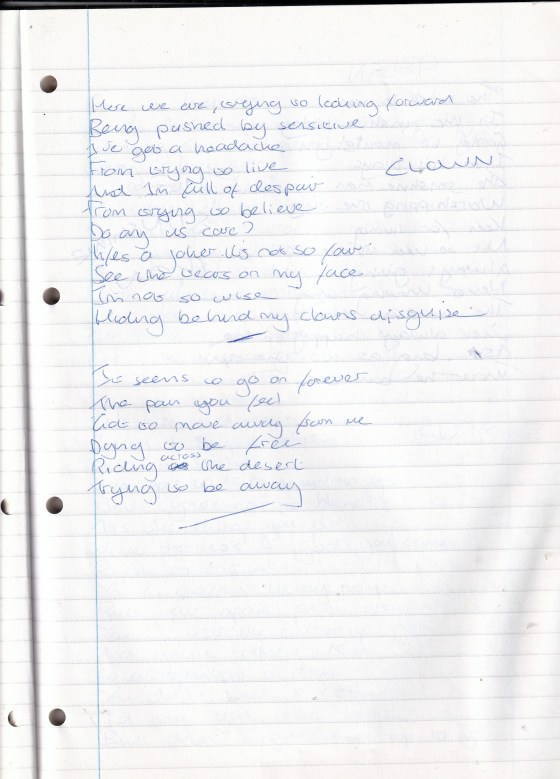 Here we are, trying to looking forward
Being pushed by sensitive
I've got a headache
From trying to live
CLOWN
And I'm full of despair
From trying to believe
Do any us care?
Life's a joker it's not so fair
See the tears on my face
I'm not so wise
Hiding behind my clowns disguise
It seems to go on forever
The pain you feel
Got to move away from me
Dying to be free
Riding across the desert
Trying to be away